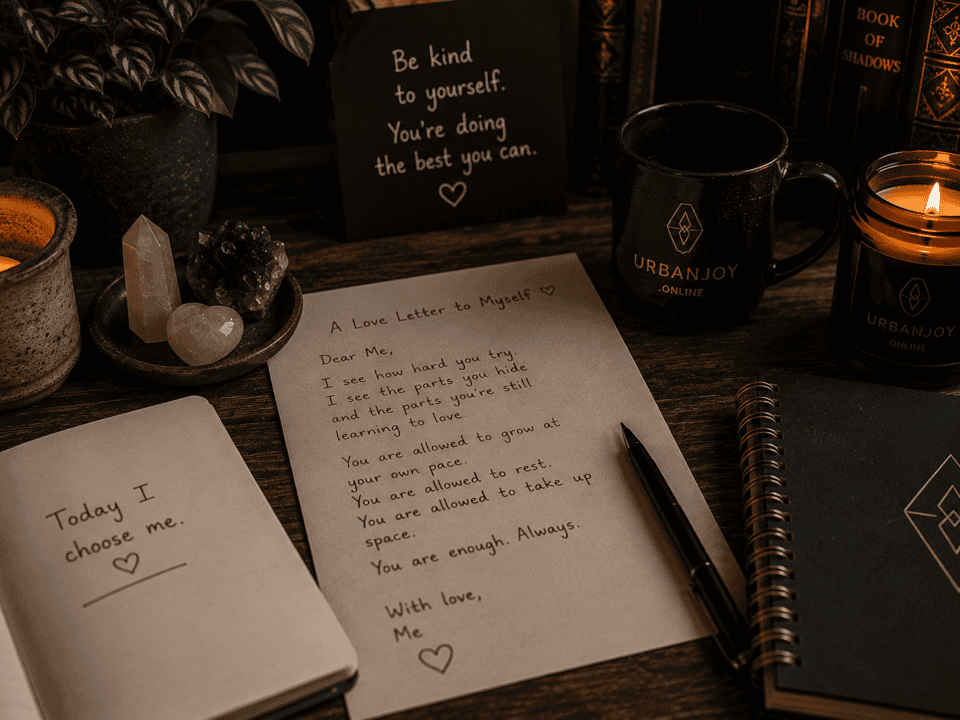 Be kind
to yourself.
You're doing
the best you can.
BOOK
OF
SHADOWS
URBANJOY
.ONLINE
URBANJOY
.ONLINE
A Love Letter to Myself ♡
Dear Me,
I see how hard you try.
I see the parts you hide
and the parts you're still
learning to love.
You are allowed to grow at
your own pace.
You are allowed to rest.
You are allowed to take up
space.
You are enough. Always.
With love,
Me
♡
Today I
choose me.
♡